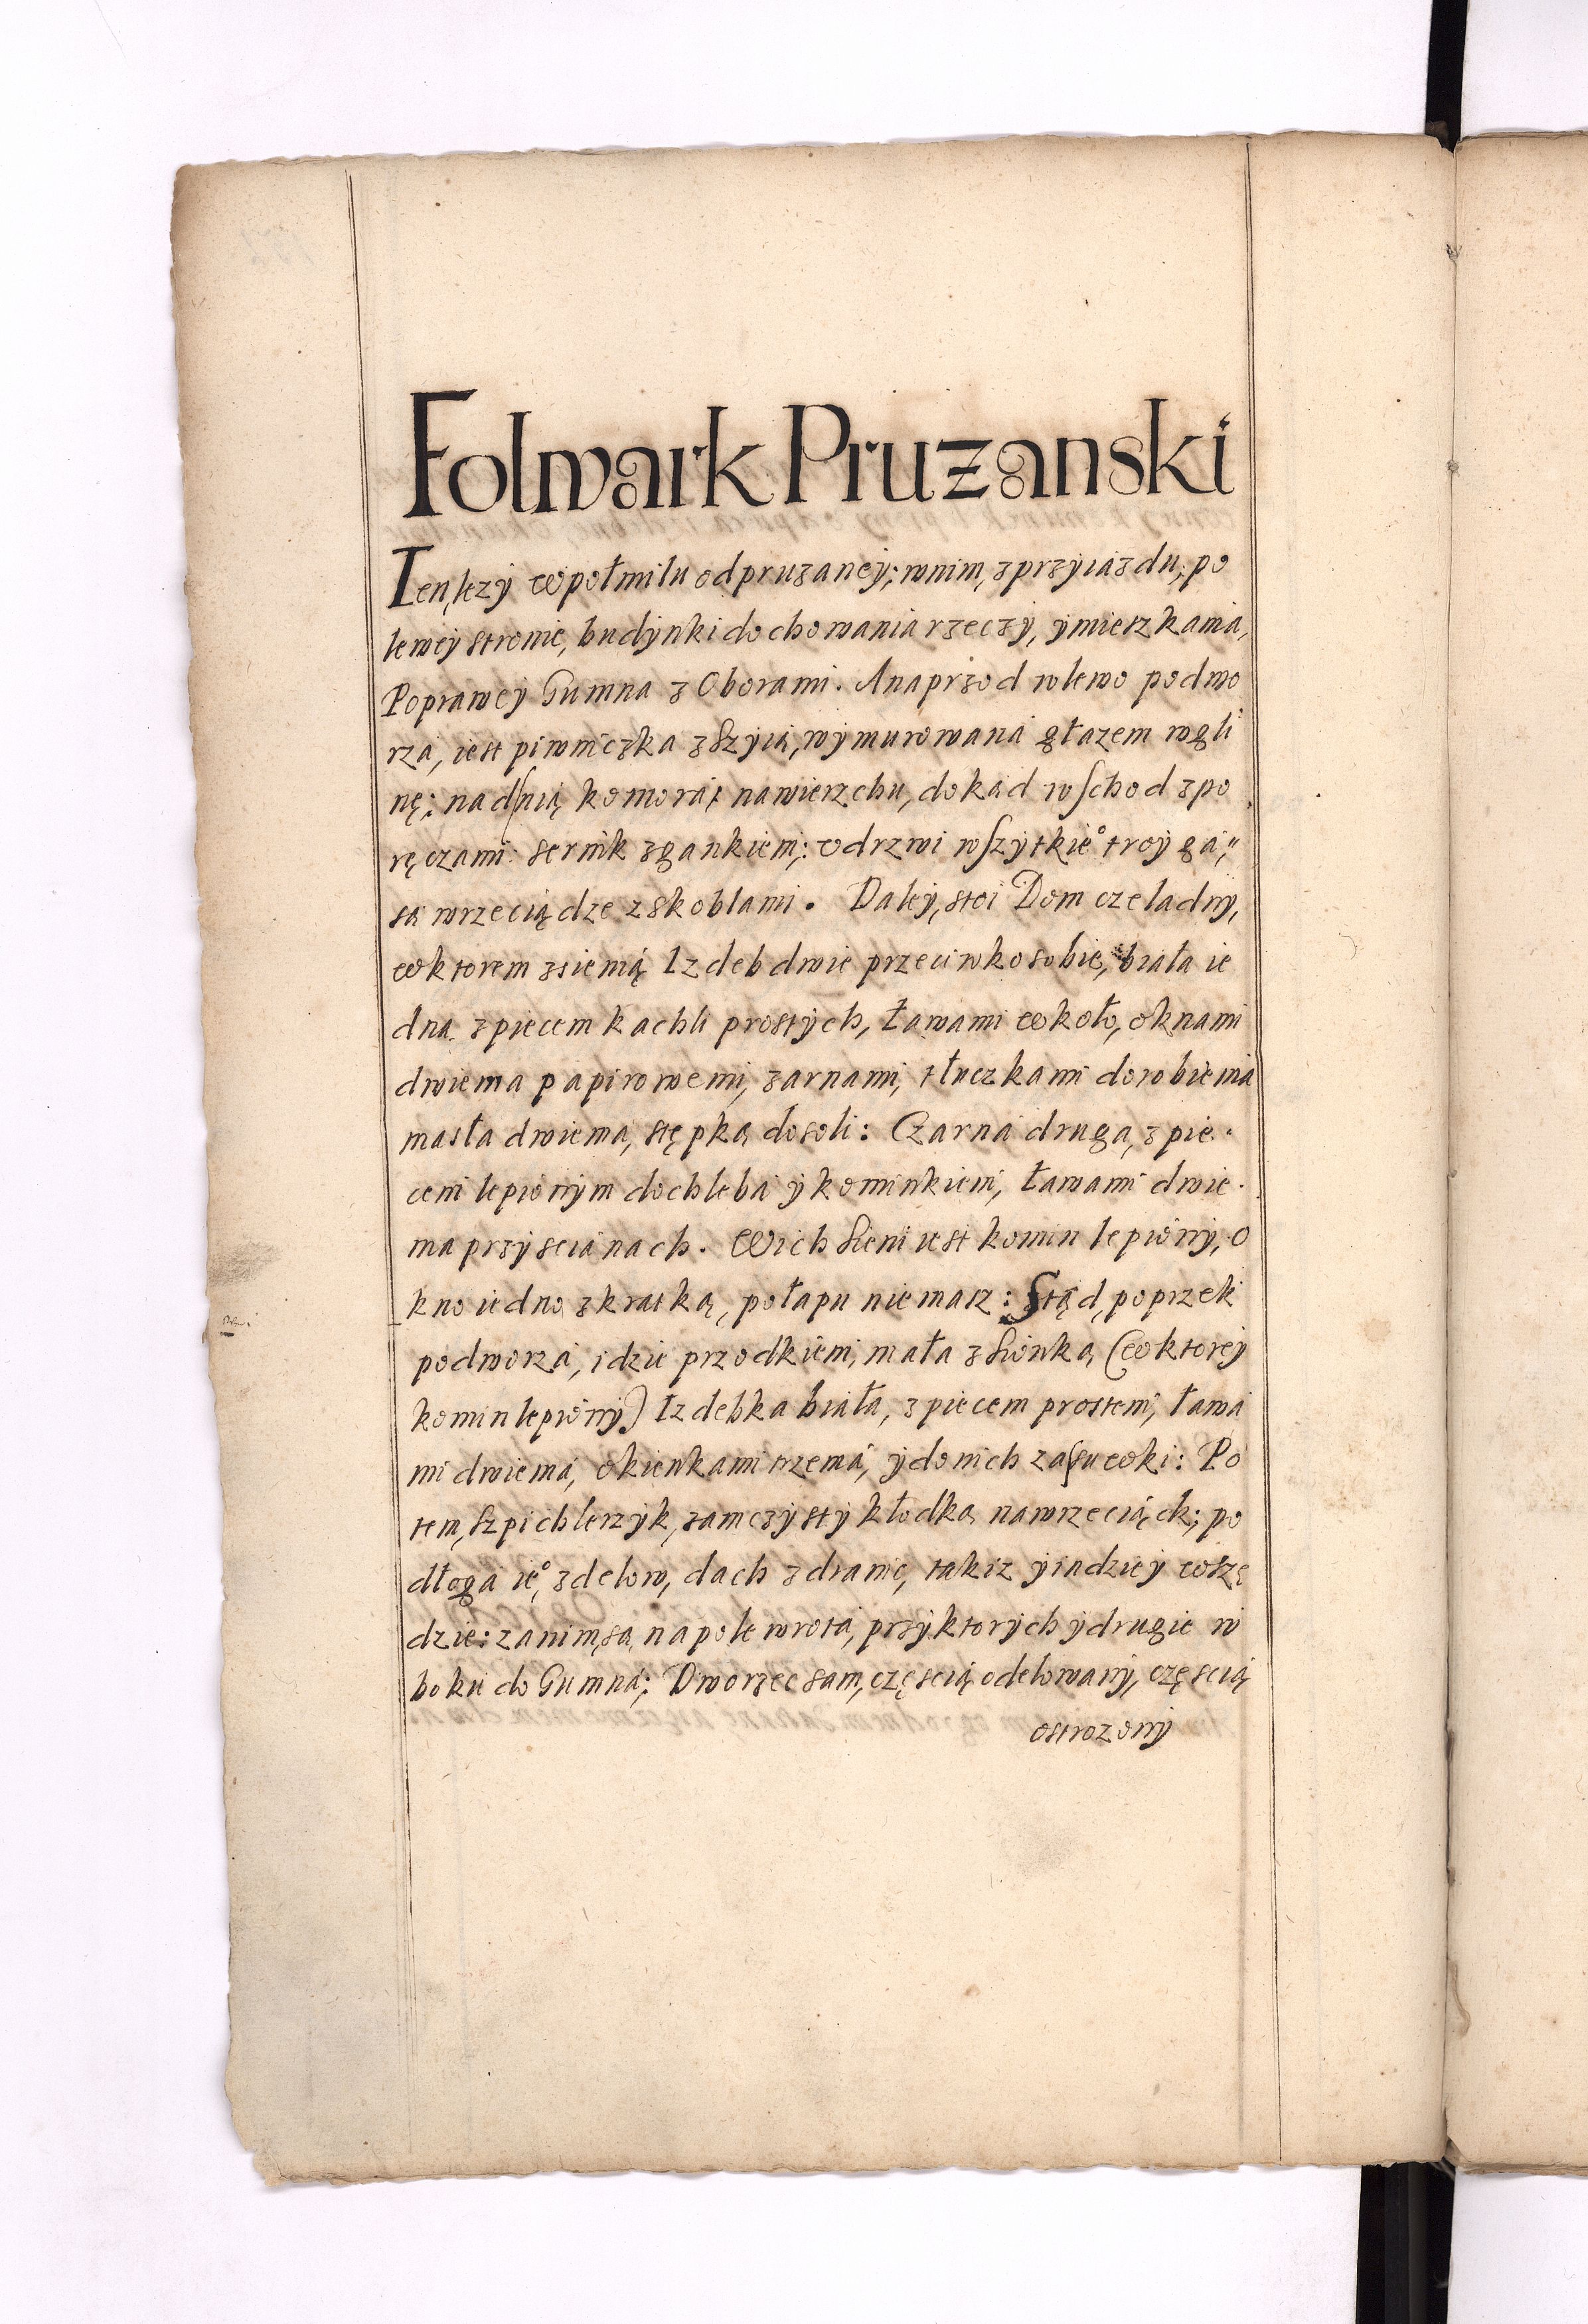 Folwark Pruzanski
Ten, lezy w połmilu od pruzaney; w nim, z przyiazdu, po
lewey stronie, budynki do chowania rzeczy, y mieszkania,
Po prawey Gumna z Oborami. A naprzod w lewo podwo
rza, iest piwniczka z szyią, wymurowana głazem w gli
nę; nad nią komora; na wierzchu, dokąd wschod z po
ręczami: sernik z gankiem; v drzwi wszytkieº troygá,"
są wrzeciądze z skoblami. Daley, stoi Dom czeladny,
w ktorem z sienią Izdeb dwie przeciwko sobie, biała ie
dna z piecem kachli prostych, ławami w koło, oknami
dwiema papirowemi, zarnami, tłuczkami do robienia
masła dwiema, stępką do soli: Czarna druga, z pie-
cem lepionym do chleba y kominkiem, ławami dwie-
ma przy scianach. W ich sieni iest komin lepiony, o
kno iedno z kratką, połapu niemasz: Stąd, poprzek
podworza, idzie przodkiem, mała z sionką (w ktorey
komin lepiony) Izdebka biała, z piecem prostem, ława
mi dwiema, okienkami trzema, y do nich zasuwki: Po
tem, szpichlerzyk, zamczysty kłodką na wrzeciądz; po
dłoga ieº, z delow, dach z dranic, takiz y indziey wszę
dzie: za nim, są na pole wrota, przy ktorych y drugie w
boku do Gumna; Dworzec sam, częscią odelowany, częscią
ostrozony